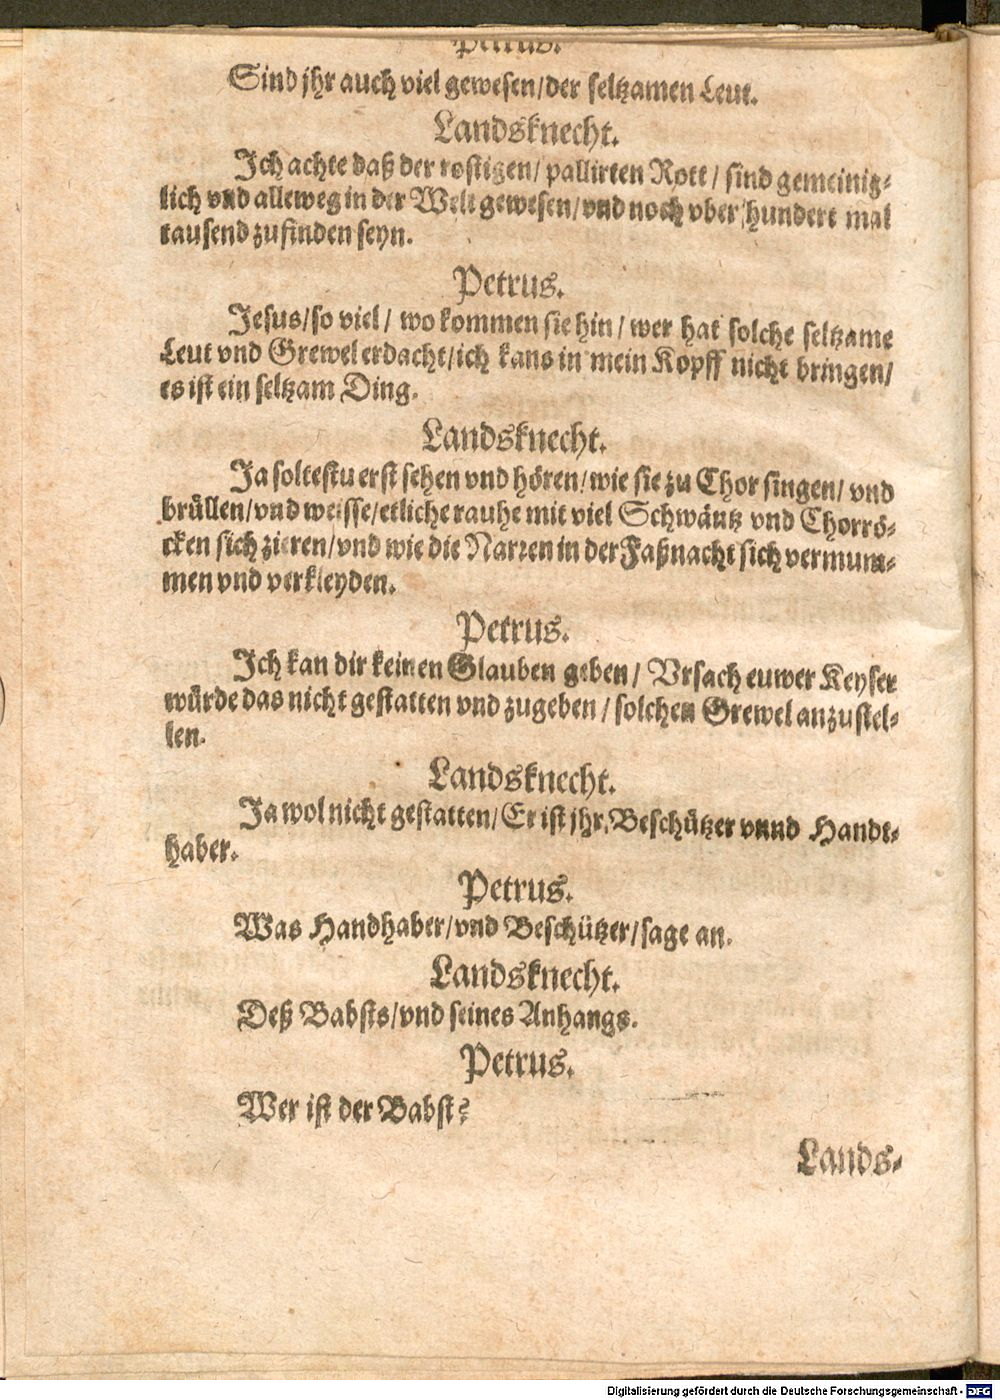 Petrus.
Sind jhr auch viel gewesen/der seltzamen Leut.
Landsknecht.
Ich achte daß der rostigen/ pallirten Rott/ sind gemeinig-
lich vnd alleweg in der Welt gewesen/vnd noch vber hundert mal
tausend zufinden seyn.
Petrus.
Jesus/so viel/ wo kommen sie hin/ wer hat solche seltzame
Leut vnd Grewel erdacht/ich kans in mein Kopff nicht bringen/
es ist ein seltzam Ding.
Landsknecht.
Ja soltestu erst sehen vnd hören/wie sie zu Chor singen/ vnd
brüllen/vnd weisse/etliche rauhe mit viel Schwäntz vnd Chorrö-
cken sich zieren/vnd wie die Narren in der Faßnacht sich vermum-
men vnd verkleyden.
Petrus.
Ich kan dir keinen Glauben geben/ Vrsach euwer Keyser
würde das nicht gestatten vnd zugeben/ solchen Grewel anzustel-
len.
Landsknecht.
Ja wol nicht gestatten/Er ist jhr Beschützer vnnd Handt-
haber.
Petrus.
Was Handhaber/vnd Beschützer/sage an.
Landsknecht.
Deß Babsts/vnd seines Anhangs.
Petrus.
Wer ist der Babst?
Lands-
Digitalisierung gefördert durch die Deutsche Forschungsgemeinschaft - DFG